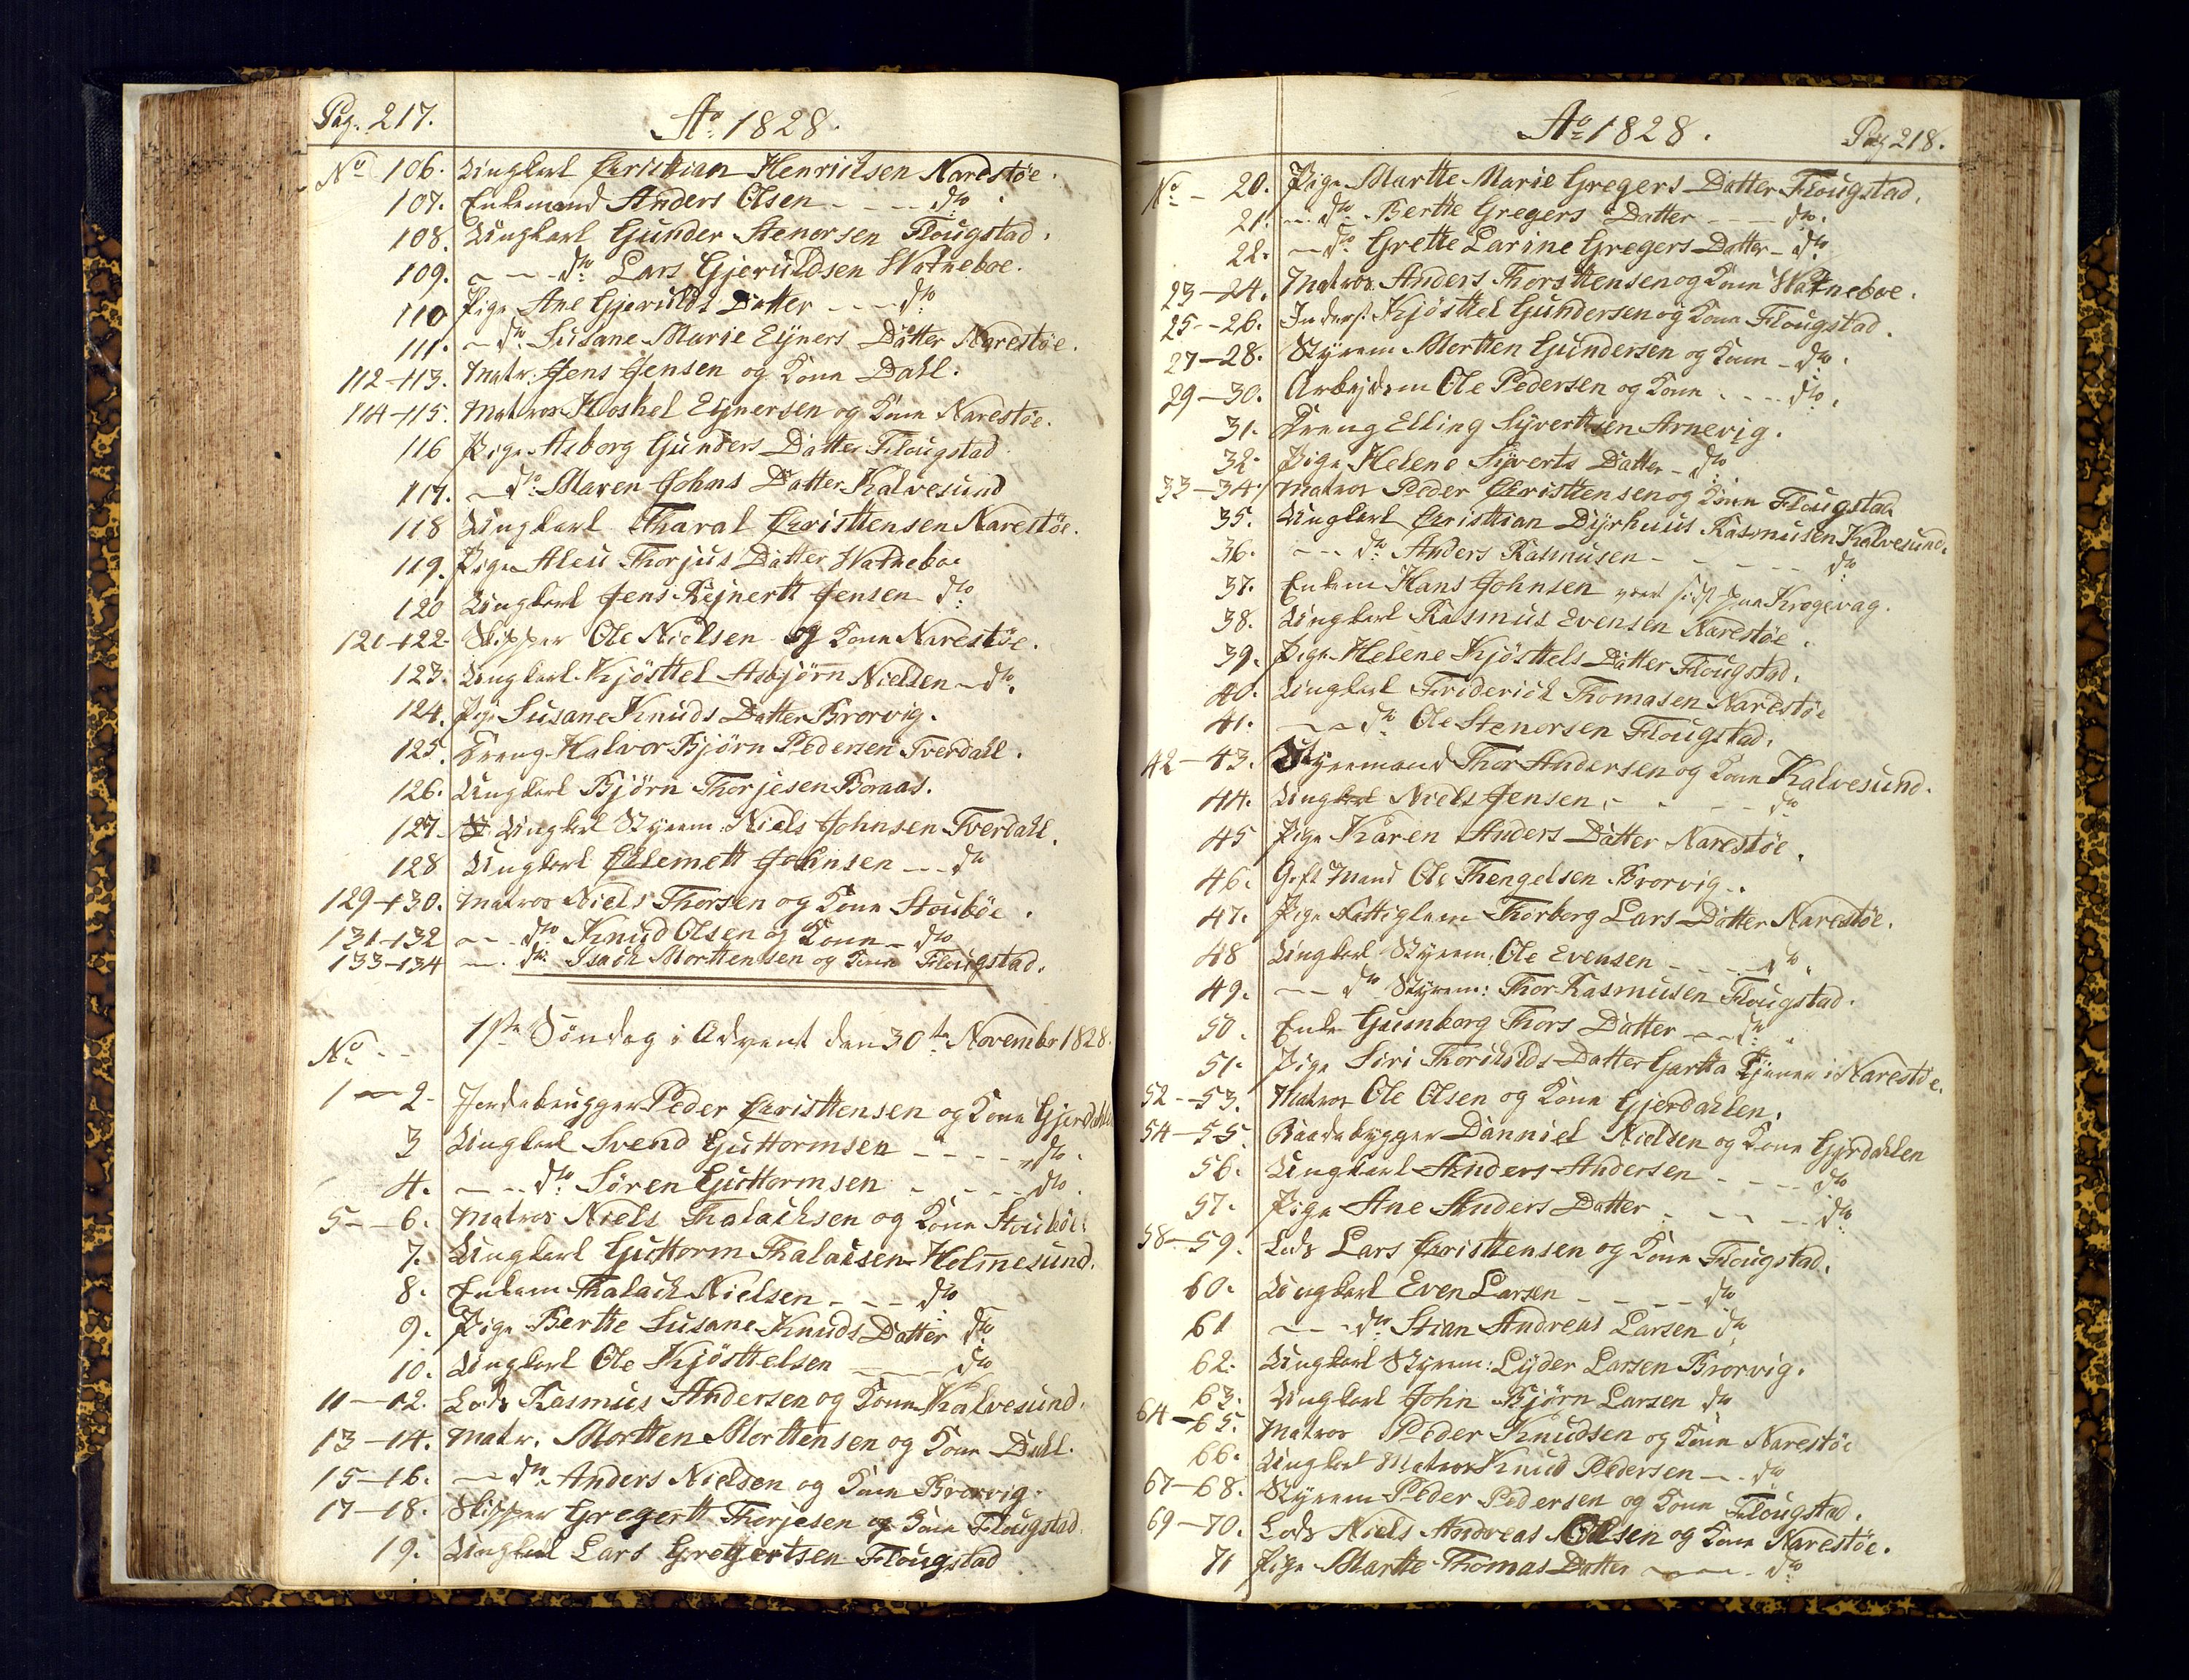 Pag. 217.
Ao 1828.
No 106. Ungkarl Christian Henrichsen Narestöe.
107. Enkemand Anders Olsen - - - do
108. Ungkarl Gunder Stenersen Flougstad.
109. - - - do Lars Gjeruldsen Watneboe.
110 Pige Ane Gjerulds Datter - - - do
111. - do Susane Marie Ejners Datter Narestöe.
112-113. Matr: Jens Jensen og Kone Dahl.
114-115. Matros Hoskel Ejnersen og Kone Narestöe.
116 Pige Asborg Gunders Datter Flougstad
117. - do Maren Johns Datter Kalvesund
118 Ungkarl Tharal Christtensen Narestöe.
119. Pige Aleu Thorjus Datter Watneboe
120 Ungkarl Jens Rejnertt Jensen do
121-122- Skipper Ole Nielsen og Kone Narestöe.
123. Ungkarl Kjösttel Asbjörn Nielsen - do.
124. Pige Susane Knuds Datter Brorvig.
125. Dreng Halvor Bjørn Pedersen Tverdahl.
126. Ungkarl Bjørn Thorjesen Boraas.
127. Ungkarl Styrem: Niels Johnsen Tverdahl.
128 Ungkarl Clemett Johnsen - - do
129-130. Matros Niels Thorsen og Kone Stouböe.
131-132 - - do Knud Olsen og Kone - do
133-134 - - do Isach Morttensen og Kone Flougstad.
No - - 1ste Söndag i Advent den 30te November 1828.
1 - 2- Jordebrugger Peder Christtensen og Kone Gjerdahlen
3 Ungkarl Svend Guttormsen - - - - do.
4. - - - do Søren Guttormsen - - - - do.
5 - - 6. Matros Niels Thalachsen og Kone Stouböe
7. Ungkarl Guttorm Thalaksen Holmesund.
8. Enkem Thalach Nielsen - - - do
9. Pige Bertte Susane Knuds Datter do
10. Ungkarl Ole Kjösttelsen - - - do
11 - 12. Lods Rasmus Andersen og Kone Kalvesund.
13 - 14. Matr. Mortten Morttensen og Kone Dahl.
15 - 16. - do Anders Nielsen og Kone Brorvig.
17 - 18. Skipper Gregertt Thorjesen og Kone Flougstad.
19. Ungkarl Lars Gregertsen Flougstad
Ao 1828.
Pag 218.
No - 20. Pige Martte Marie Gregers Datter Flougstad.
21. - do Bertte Gregers Datter - - do.
22. - do Grette Larine Gregers Datter - do
23-24. Matros Anders Thorsttensen og Kone Watneboe.
25--26. Inderst Kjösttel Gundersen og Kone Flougstad.
27-28. Styrem Mortten Gundersen og Kone - do.
29-30. Arbejdsm Ole Pedersen og Kone - - - do.
31. Dreng Elling Syverttsen Arnevig.
32. Pige Helene Syverts Datter - do
33-34. Matros Peder Christtensen og Kone Flougstad
35. Ungkarl Christtian Dyrhuus Rasmusen Kalvesund.
36. - - - do Anders Rasmusen - - - - do
37. Enkem Hans Johnsen Krogevag.
38. Ungkarl Rasmus Evensen Narestöe.
39. Pige Helene Kjösttels Datter Flougstad.
40. Ungkarl Friderich Thomasen Narestöe
41. - - do Ole Stenersen Flougstad.
42-43. Styremand Thor Andersen og Kone Kalvesund.
44. Ungkarl Niels Jensen - - - - do
45 Pige Karen Anders Datter Narestöe.
46. Gift Mand Ole Thengelsen Brorvig.
47. Pige Fattiglem Thorborg Lars Datter Narestöe.
48 Ungkarl Styrem: Ole Evensen - - - do.
49. - - do Styrem: Thor Rasmusen Flougstad.
50. Enke Guunborg Thors Datter - - do
51. Pige Siri Thorkilds Datter Gartta tjener i Narestöe.
52--53. Matros Ole Olsen og Kone Gjerdahlen.
54-55. Baadebygger Danniel Nielsen og Kone Gjerdahlen
56. Ungkarl Anders Andersen - - - do
57. Pige Ane Anders Datter - - - - do
58-59. Lods Lars Christtensen og Kone Flougstad.
60. Ungkarl Even Larsen - - - - do
61 - - - do Stian Andreas Larsen do
62. Ungkarl Styrem: Lyder Larsen Brorvig.
63. Ungkarl John Bjørn Larsen do
64-65. Matros Peder Knudsen og Kone Narestöe
66. Ungkarl Matros Knud Pedersen - - do
67-68. Styrem Peder Pedersen og Kone Flougstad.
69-70. Lods Niels Andreas Olsen og Kone Narestöe.
71 Pige Martte Thomas Datter - - - do